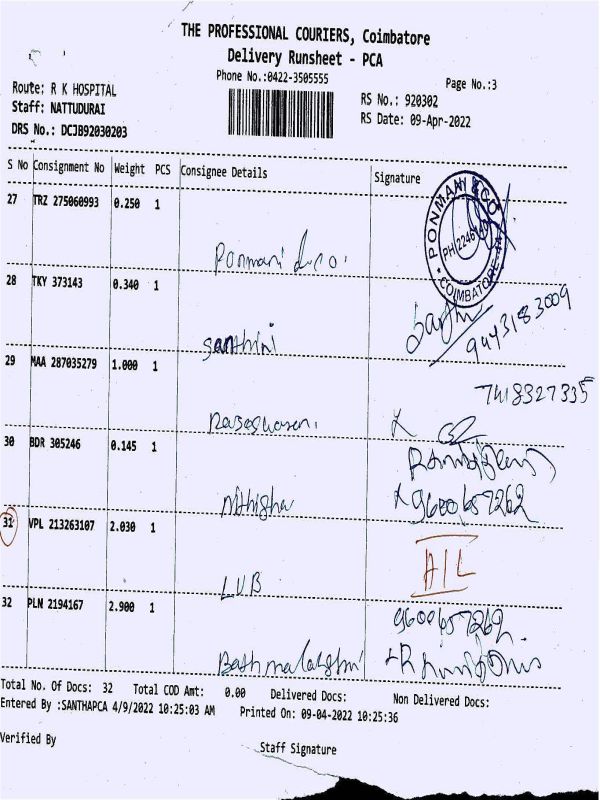 THE PROFESSIONAL COURIERS, Coimbatore
Delivery Runsheet - PCA
Phone No.:0422-3505555
Page No.:3
Route: R K HOSPITAL
Staff: NATTUDURAI
DRS No.: DCJB92030203
RS No.: 920302
RS Date: 09-Apr-2022
S No Consignment No Weight PCS Consignee Details Signature
27 TRZ 275060993 0.250 1
PONMANI & CO
COIMBATORE
Ponmani & co.
28 TKY 373143 0.340 1
santhini
9443183009
29 MAA 287035279 1.000 1
7418327335
30 BDR 305246 0.145 1
Nithisha
9600657262
31 VPL 213263107 2.030 1
LUB
A/L
32 PLN 2194167 2.900 1
9600657262
Total No. Of Docs: 32 Total COD Amt: 0.00 Delivered Docs: Non Delivered Docs:
Entered By :SANTHAPCA 4/9/2022 10:25:03 AM Printed On: 09-04-2022 10:25:36
Verified By
Staff Signature